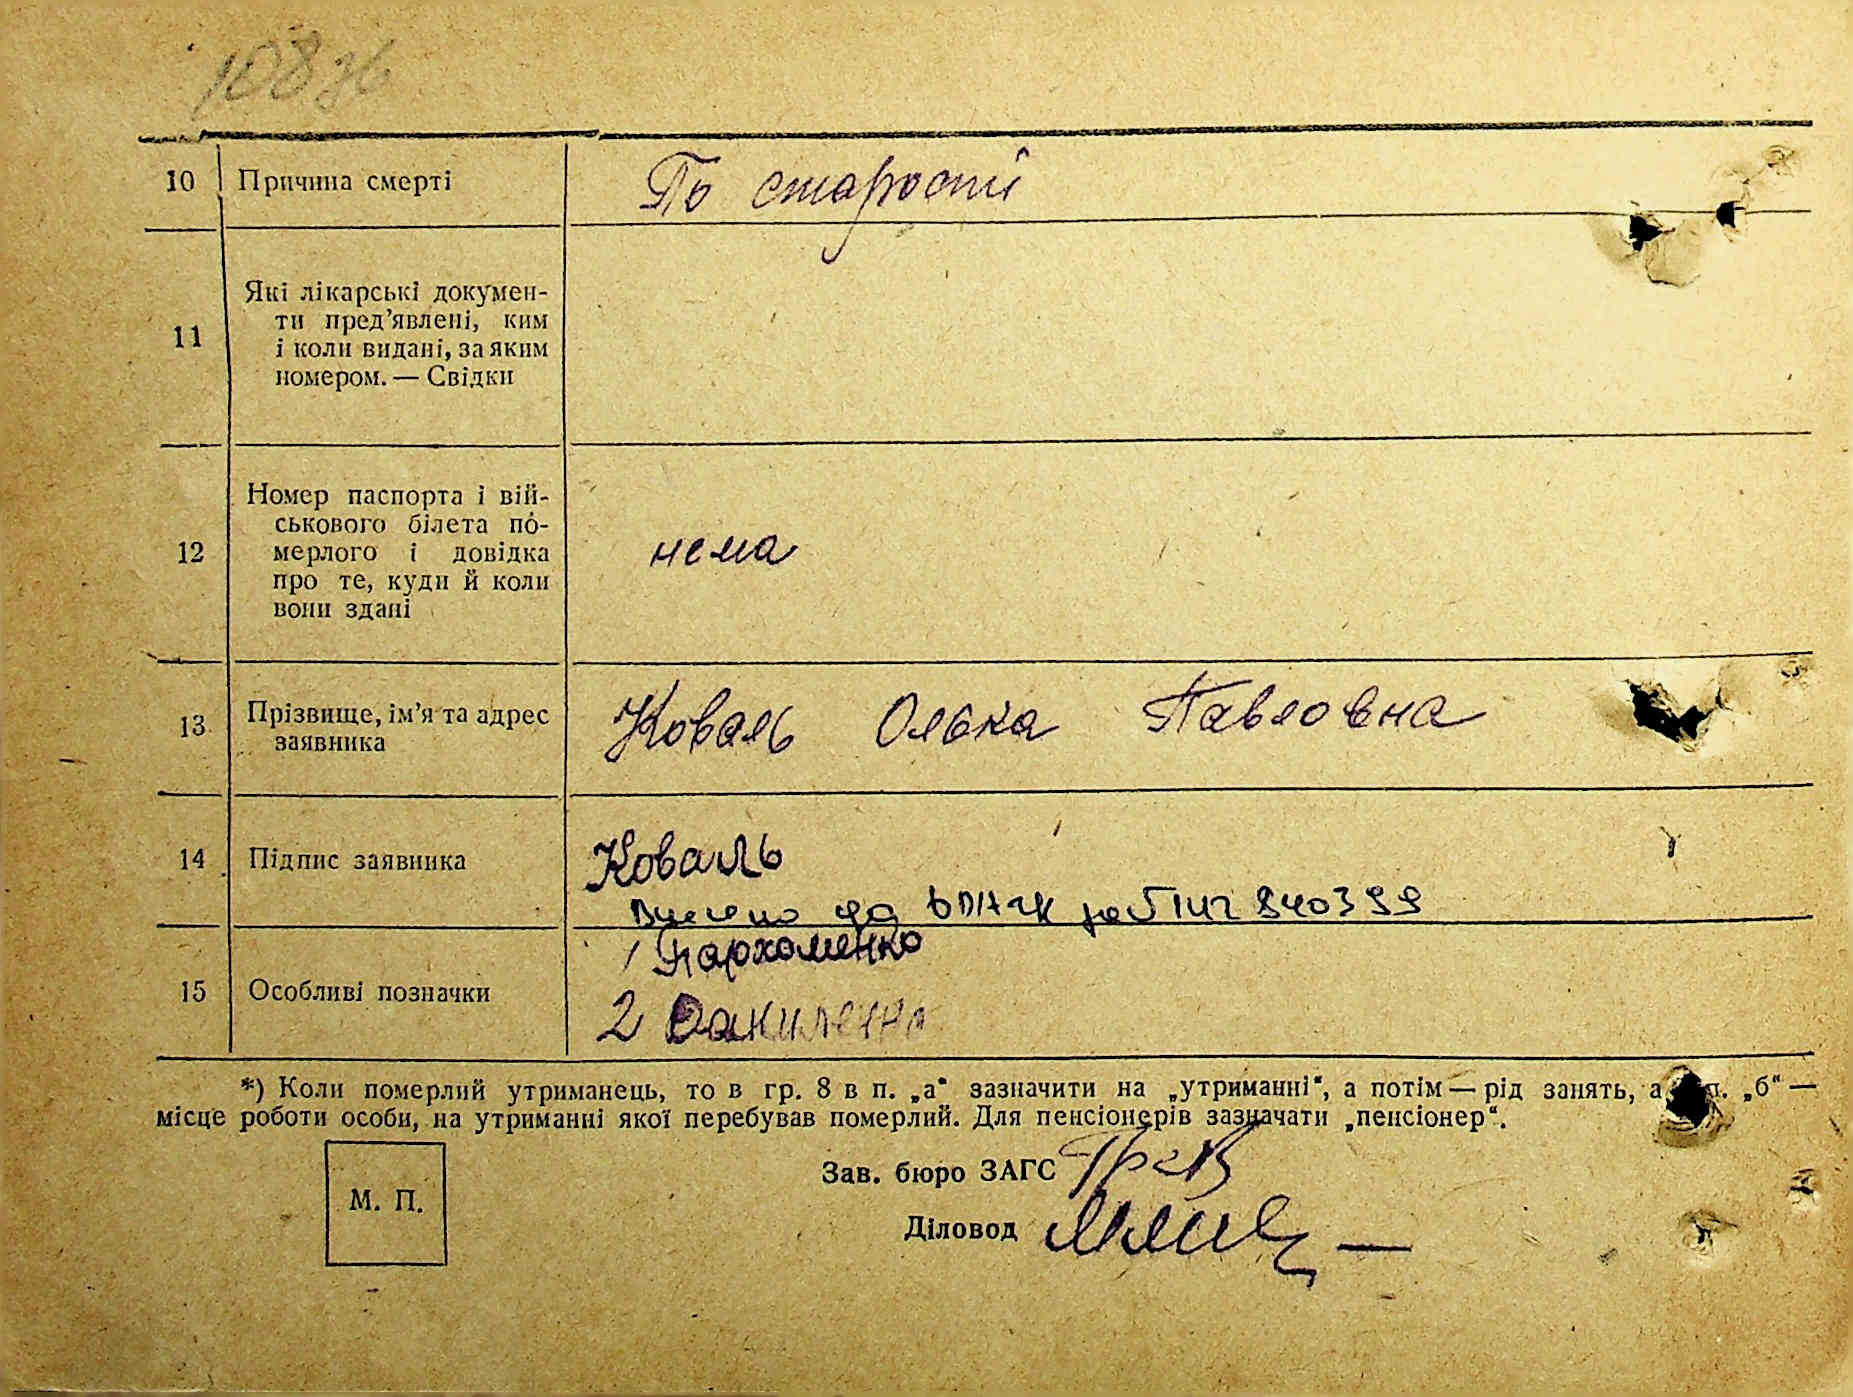 10 Причина смерті По старості
11 Які лікарські докумен-
ти пред’явлені, ким
і коли видані, за яким
номером. — Свідки
12 Номер паспорта і вій-
ськового білета по-
мерлого і довідка
про те, куди й коли
вони здані
нема
13 Прізвище, ім’я та адрес
заявника
Коваль Олька Павловна
14 Підпис заявника Коваль
1 Пархоменко
15 Особливі позначки
2 Даниленко
*) Коли померлий утриманець, то в гр. 8 в п. „а“ зазначити на „утриманні“, а потім — рід занять, а п. „б“ —
місце роботи особи, на утриманні якої перебував померлий. Для пенсіонерів зазначати „пенсіонер“.
Зав. бюро ЗАГС
М. П.
Діловод